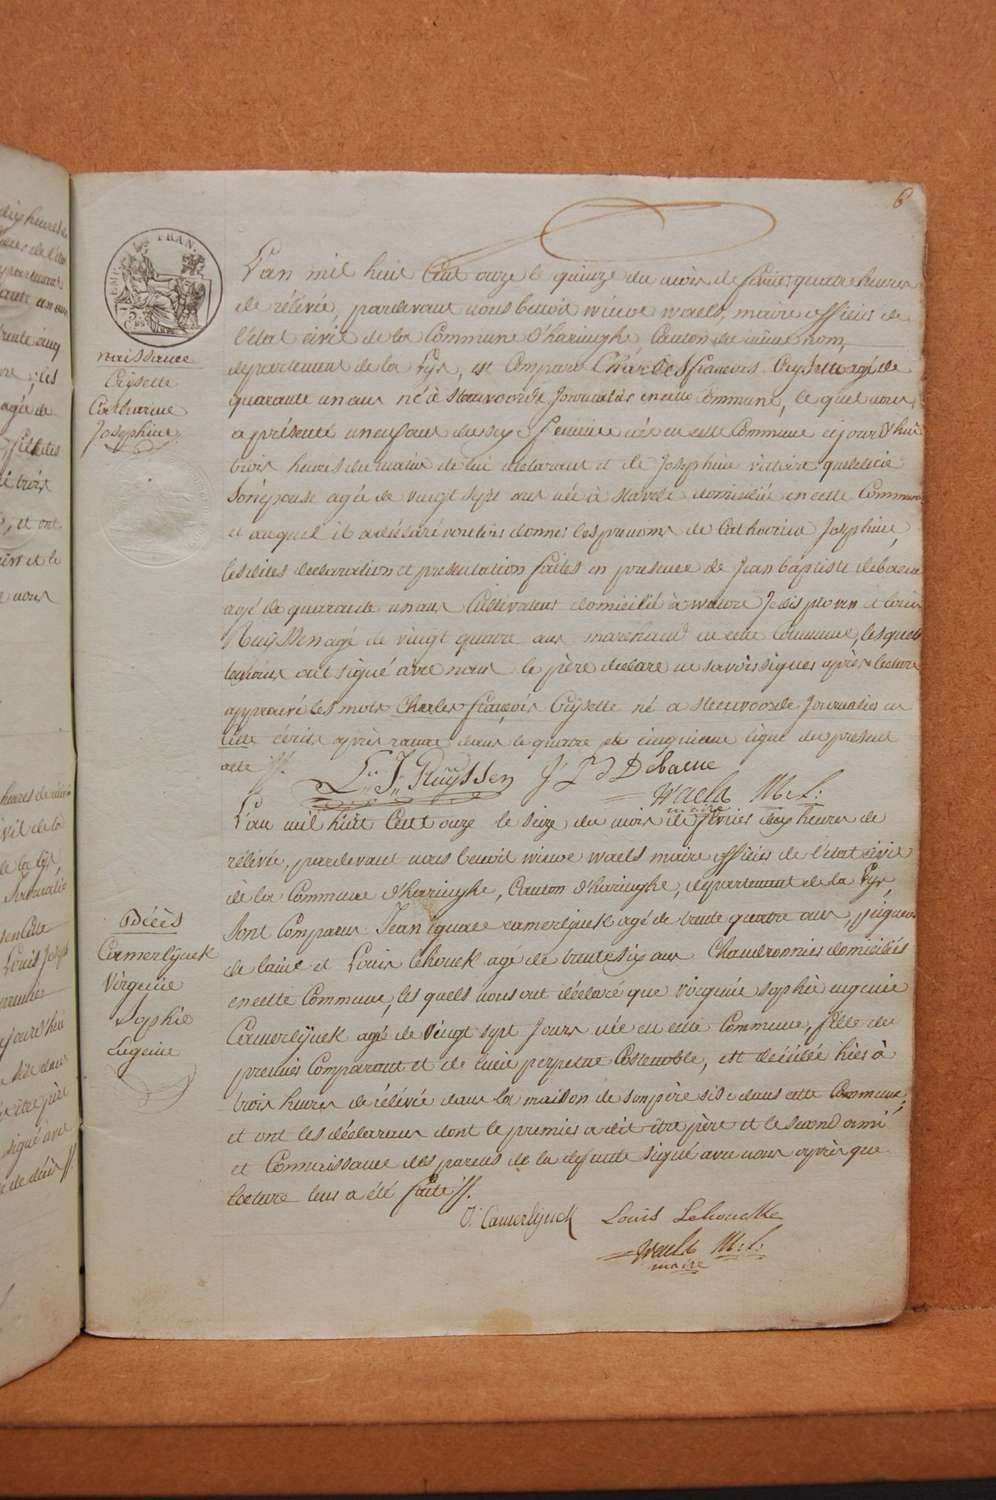 6
L'an mil huit Cent onze le quinze du mois de fevrier quatre heures
de rélévée, pardevant nous benoit winoc waels, maire officier de
l'état civil de la Commune d'haringhe Canton du même nom,
departement de la Lys, est Comparu Charles françois Cuysette agé de
quarante un ans né à Steenvoorde Journalier en cette Commune, le quel nous
a présenté un enfant du sexe feminin née en cette Commune cejourd'hui
trois heures du matin de lui déclarant et de Josephine victoire
Son épouse agée de vingt sept ans née à Stavele domiciliée en cette Commune
et auquel il a déclaré vouloir donner les prenoms de Catharine Josephine,
les dites déclaration et presentation faites en presence de Jean baptiste debacue
agé de quarante un ans Cultivateur domicilié à watou et Louis
Ruyssen agé de vingt quatre ans marchand en cette Commune, les quels
temoins ont signé avec nous le père declare ne savoir signer après lecture
approuvé les mots Charles françois Cuysette né a Steenvoorde Journalier en
cette écrits après rature dans le quatre et cinquieme ligne du present
acte //.
L.. J.. Ruyssen J B D Debacue
Waels M: f:
maire
naissance
Cuysette
Catharine
Josephine
L'an mil huit Cent onze le seize du mois de fevrier dix heures de
rélévée, pardevant nous benoit winoc waels maire officier de l'état civil
de la Commune d'haringhe, Canton d'haringhe, departement de la Lys,
Sont Comparus Jean Ignace Camerlÿnck agé de trente quatre ans, peigneur
de laine et Louis Lehouck agé de trente six ans Chaudronnier domiciliés
en cette Commune, les quels nous ont déclaré que virginie sophie eugenie
Camerlÿnck agé de vingt sept Jours née en cette Commune, fille du
premier Comparant et de perpetue Costenoble, est décédée hier à
trois heures de rélévée dans la maison de son père sise dans cette Commune;
et ont les déclarans dont le premier a dit être père et le second ami
et Connaissance des parens de la defunte signé avec nous après que
lecture leur a été faite //.
J: Camerlÿnck Louis Lehoucke
Waels M: f:
maire
Décès
Camerlÿnck
Virginie
Sophie
Eugenie